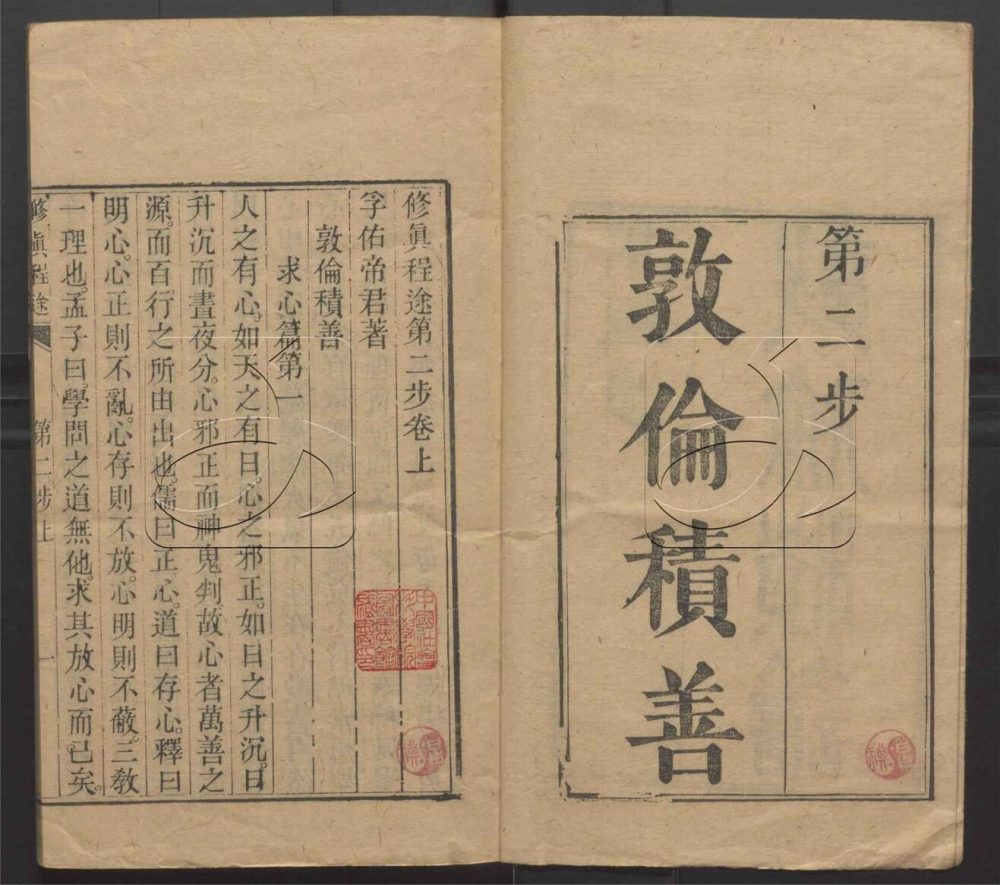 第二步
敦倫積善
修眞程途第二步卷上
孚佑帝君著
敦倫積善
求心篇第一
人之有心。如天之有日。心之邪正。如日之升沉。日
升沉而晝夜分。心邪正而神鬼判。故心者萬善之
源。而百行之所由出也。儒曰正心。道曰存心。釋曰
明心。心正則不亂。心存則不放。心明則不蔽。三敎
一理也。孟子曰。學問之道無他。求其放心而已矣。
修眞程途
第二步上
一